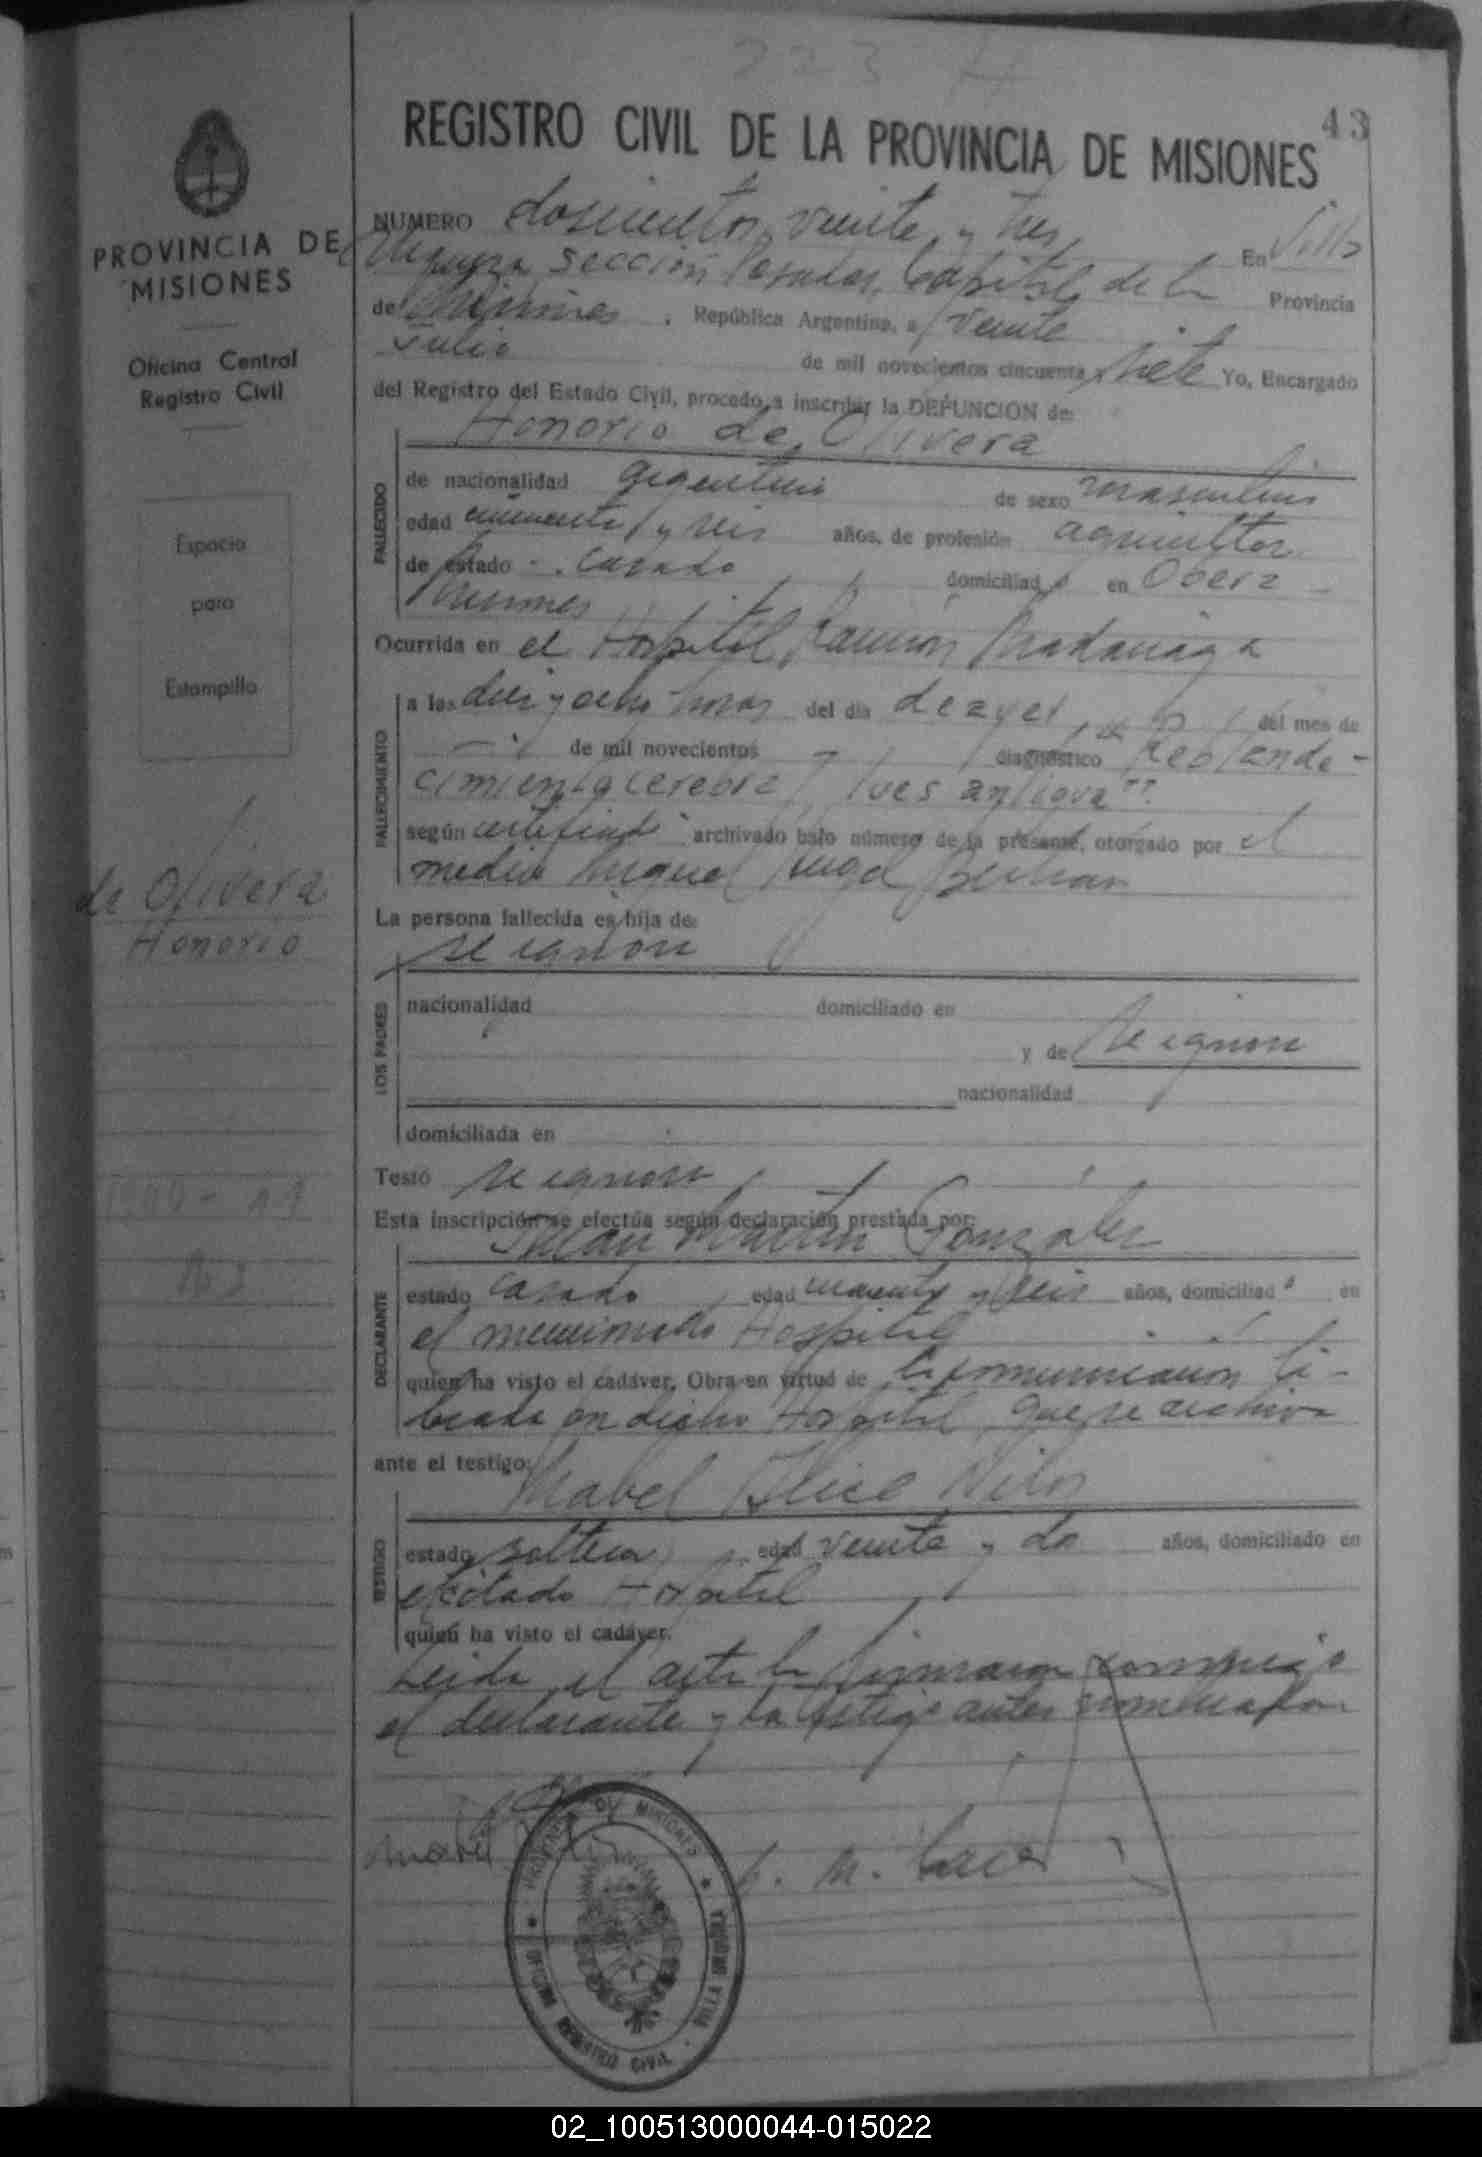 223
43
REGISTRO CIVIL DE LA PROVINCIA DE MISIONES
PROVINCIA DE
MISIONES
Oficina Central
Registro Civil
Espacio
para
Estampilla
de Olivera
Honorio
NUMERO doscientos veinte y tres En Villa
Urquiza sección Posadas, Capital de la Provincia
de Misiones, República Argentina, a veinte
Julio de mil novecientos cincuenta y siete Yo, Encargado
del Registro del Estado Civil, procedo a inscribir la DEFUNCION de:
Honorio de Olivera
FALLECIDO
de nacionalidad argentino de sexo masculino
edad cincuenta y seis años, de profesión agricultor
de estado casado domiciliado en Oberá
Misiones
Ocurrida en el Hospital Ramón Madariaga
FALLECIMIENTO
a las diez y ocho horas del día de ayer del mes de
de mil novecientos diagnóstico Reblande-
cimiento cerebral lues antigua
según certificado archivado bajo número de la presente, otorgado por el
médico Miguel Angel
La persona fallecida es hija de:
se ignora
LOS PADRES
nacionalidad domiciliado en
y de se ignora
nacionalidad
domiciliada en
Testó se ignora
Esta inscripción se efectúa según declaración prestada por:
Juan Martín González
DECLARANTE
estado casado edad y seis años, domiciliado en
el mencionado Hospital
quien ha visto el cadáver. Obra en virtud de la comunicación li-
brada en dicho Hospital que se archiva
ante el testigo:
Mabel Alice
TESTIGO
estado soltera edad veinte y dos años, domiciliado en
el citado Hospital
quien ha visto el cadáver.
Leida el acta la firmaron conmigo
el declarante y la testigo antes nombrados
PROVINCIA DE MISIONES
OFICINA REGISTRO CIVIL
02_100513000044-015022